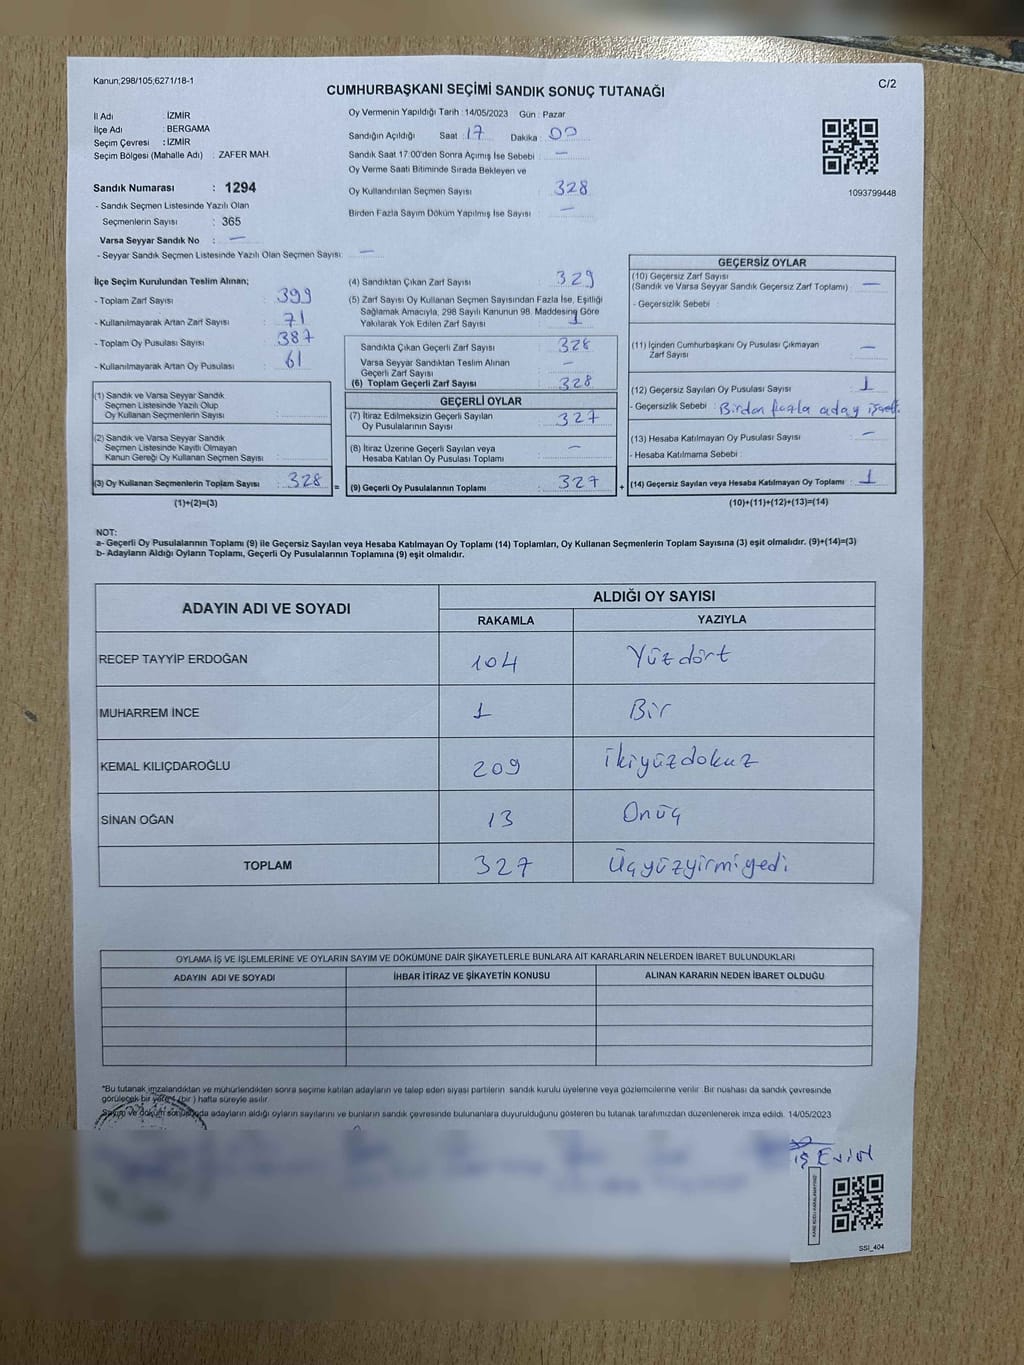 Kanun;298/105;6271/18-1
C/2
CUMHURBAŞKANI SEÇİMİ SANDIK SONUÇ TUTANAĞI
İl Adı : İZMİR
İlçe Adı : BERGAMA
Seçim Çevresi : İZMİR
Seçim Bölgesi (Mahalle Adı) : ZAFER MAH.
Sandık Numarası : 1294
- Sandık Seçmen Listesinde Yazılı Olan
Seçmenlerin Sayısı : 365
Varsa Seyyar Sandık No : —
- Seyyar Sandık Seçmen Listesinde Yazılı Olan Seçmen Sayısı: —
Oy Vermenin Yapıldığı Tarih : 14/05/2023 Gün : Pazar
Sandığın Açıldığı Saat : 17 Dakika : 00
Sandık Saat 17:00'den Sonra Açımış İse Sebebi : —
Oy Verme Saati Bitiminde Sırada Bekleyen ve
Oy Kullandırılan Seçmen Sayısı : 328
Birden Fazla Sayım Döküm Yapılmış İse Sayısı : —
1093799448
İlçe Seçim Kurulundan Teslim Alınan;
- Toplam Zarf Sayısı : 399
- Kullanılmayarak Artan Zarf Sayısı : 71
- Toplam Oy Pusulası Sayısı : 387
- Kullanılmayarak Artan Oy Pusulası : 61
(1) Sandık ve Varsa Seyyar Sandık
Seçmen Listesinde Yazılı Olup
Oy Kullanan Seçmenlerin Sayısı :
(2) Sandık ve Varsa Seyyar Sandık
Seçmen Listesinde Kayıtlı Olmayan
Kanun Gereği Oy Kullanan Seçmen Sayısı :
(3) Oy Kullanan Seçmenlerin Toplam Sayısı : 328
(1)+(2)=(3)
(4) Sandıktan Çıkan Zarf Sayısı : 329
(5) Zarf Sayısı Oy Kullanan Seçmen Sayısından Fazla İse, Eşitliği
Sağlamak Amacıyla, 298 Sayılı Kanunun 98. Maddesine Göre
Yakılarak Yok Edilen Zarf Sayısı : 1
Sandıkta Çıkan Geçerli Zarf Sayısı : 328
Varsa Seyyar Sandıktan Teslim Alınan
Geçerli Zarf Sayısı : —
(6) Toplam Geçerli Zarf Sayısı : 328
GEÇERLİ OYLAR
(7) İtiraz Edilmeksizin Geçerli Sayılan
Oy Pusulalarının Sayısı : 327
(8) İtiraz Üzerine Geçerli Sayılan veya
Hesaba Katılan Oy Pusulası Toplamı : —
= (9) Geçerli Oy Pusulalarının Toplamı : 327 +
GEÇERSİZ OYLAR
(10) Geçersiz Zarf Sayısı
(Sandık ve Varsa Seyyar Sandık Geçersiz Zarf Toplamı) : —
- Geçersizlik Sebebi :
(11) İçinden Cumhurbaşkanı Oy Pusulası Çıkmayan
Zarf Sayısı : —
(12) Geçersiz Sayılan Oy Pusulası Sayısı : 1
- Geçersizlik Sebebi : Birden fazla aday işaret.
(13) Hesaba Katılmayan Oy Pusulası Sayısı : —
- Hesaba Katılmama Sebebi :
(14) Geçersiz Sayılan veya Hesaba Katılmayan Oy Toplamı : 1
(10)+(11)+(12)+(13)=(14)
NOT:
a- Geçerli Oy Pusulalarının Toplamı (9) ile Geçersiz Sayılan veya Hesaba Katılmayan Oy Toplamı (14) Toplamları, Oy Kullanan Seçmenlerin Toplam Sayısına (3) eşit olmalıdır. (9)+(14)=(3)
b- Adayların Aldığı Oyların Toplamı, Geçerli Oy Pusulalarının Toplamına (9) eşit olmalıdır.
ADAYIN ADI VE SOYADI
ALDIĞI OY SAYISI
RAKAMLA YAZIYLA
RECEP TAYYİP ERDOĞAN 104 Yüzdört
MUHARREM İNCE 1 Bir
KEMAL KILIÇDAROĞLU 209 ikiyüzdokuz
SİNAN OĞAN 13 Onüç
TOPLAM 327 Üçyüzyirmiyedi
OYLAMA İŞ VE İŞLEMLERİNE VE OYLARIN SAYIM VE DÖKÜMÜNE DAİR ŞİKAYETLERLE BUNLARA AİT KARARLARIN NELERDEN İBARET BULUNDUKLARI
ADAYIN ADI VE SOYADI İHBAR İTİRAZ VE ŞİKAYETİN KONUSU ALINAN KARARIN NEDEN İBARET OLDUĞU
*Bu tutanak imzalandıktan ve mühürlendikten sonra seçime katılan adayların ve talep eden siyasi partilerin sandık kurulu üyelerine veya gözlemcilerine verilir. Bir nüshası da sandık çevresinde
görülecek bir yere 1 (bir ) hafta süreyle asılır.
Sayım ve döküm sonucunda adayların aldığı oyların sayılarını ve bunların sandık çevresinde bulunanlara duyurulduğunu gösteren bu tutanak tarafımızdan düzenlenerek imza edildi. 14/05/2023
SSI_404